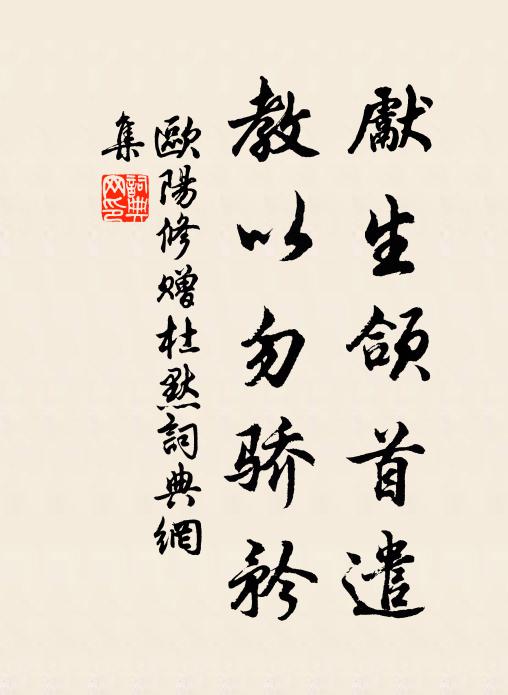 獻生頜首遣
教以勿骄矜
歐陽修贈杜默詞典網
集
詞典网印